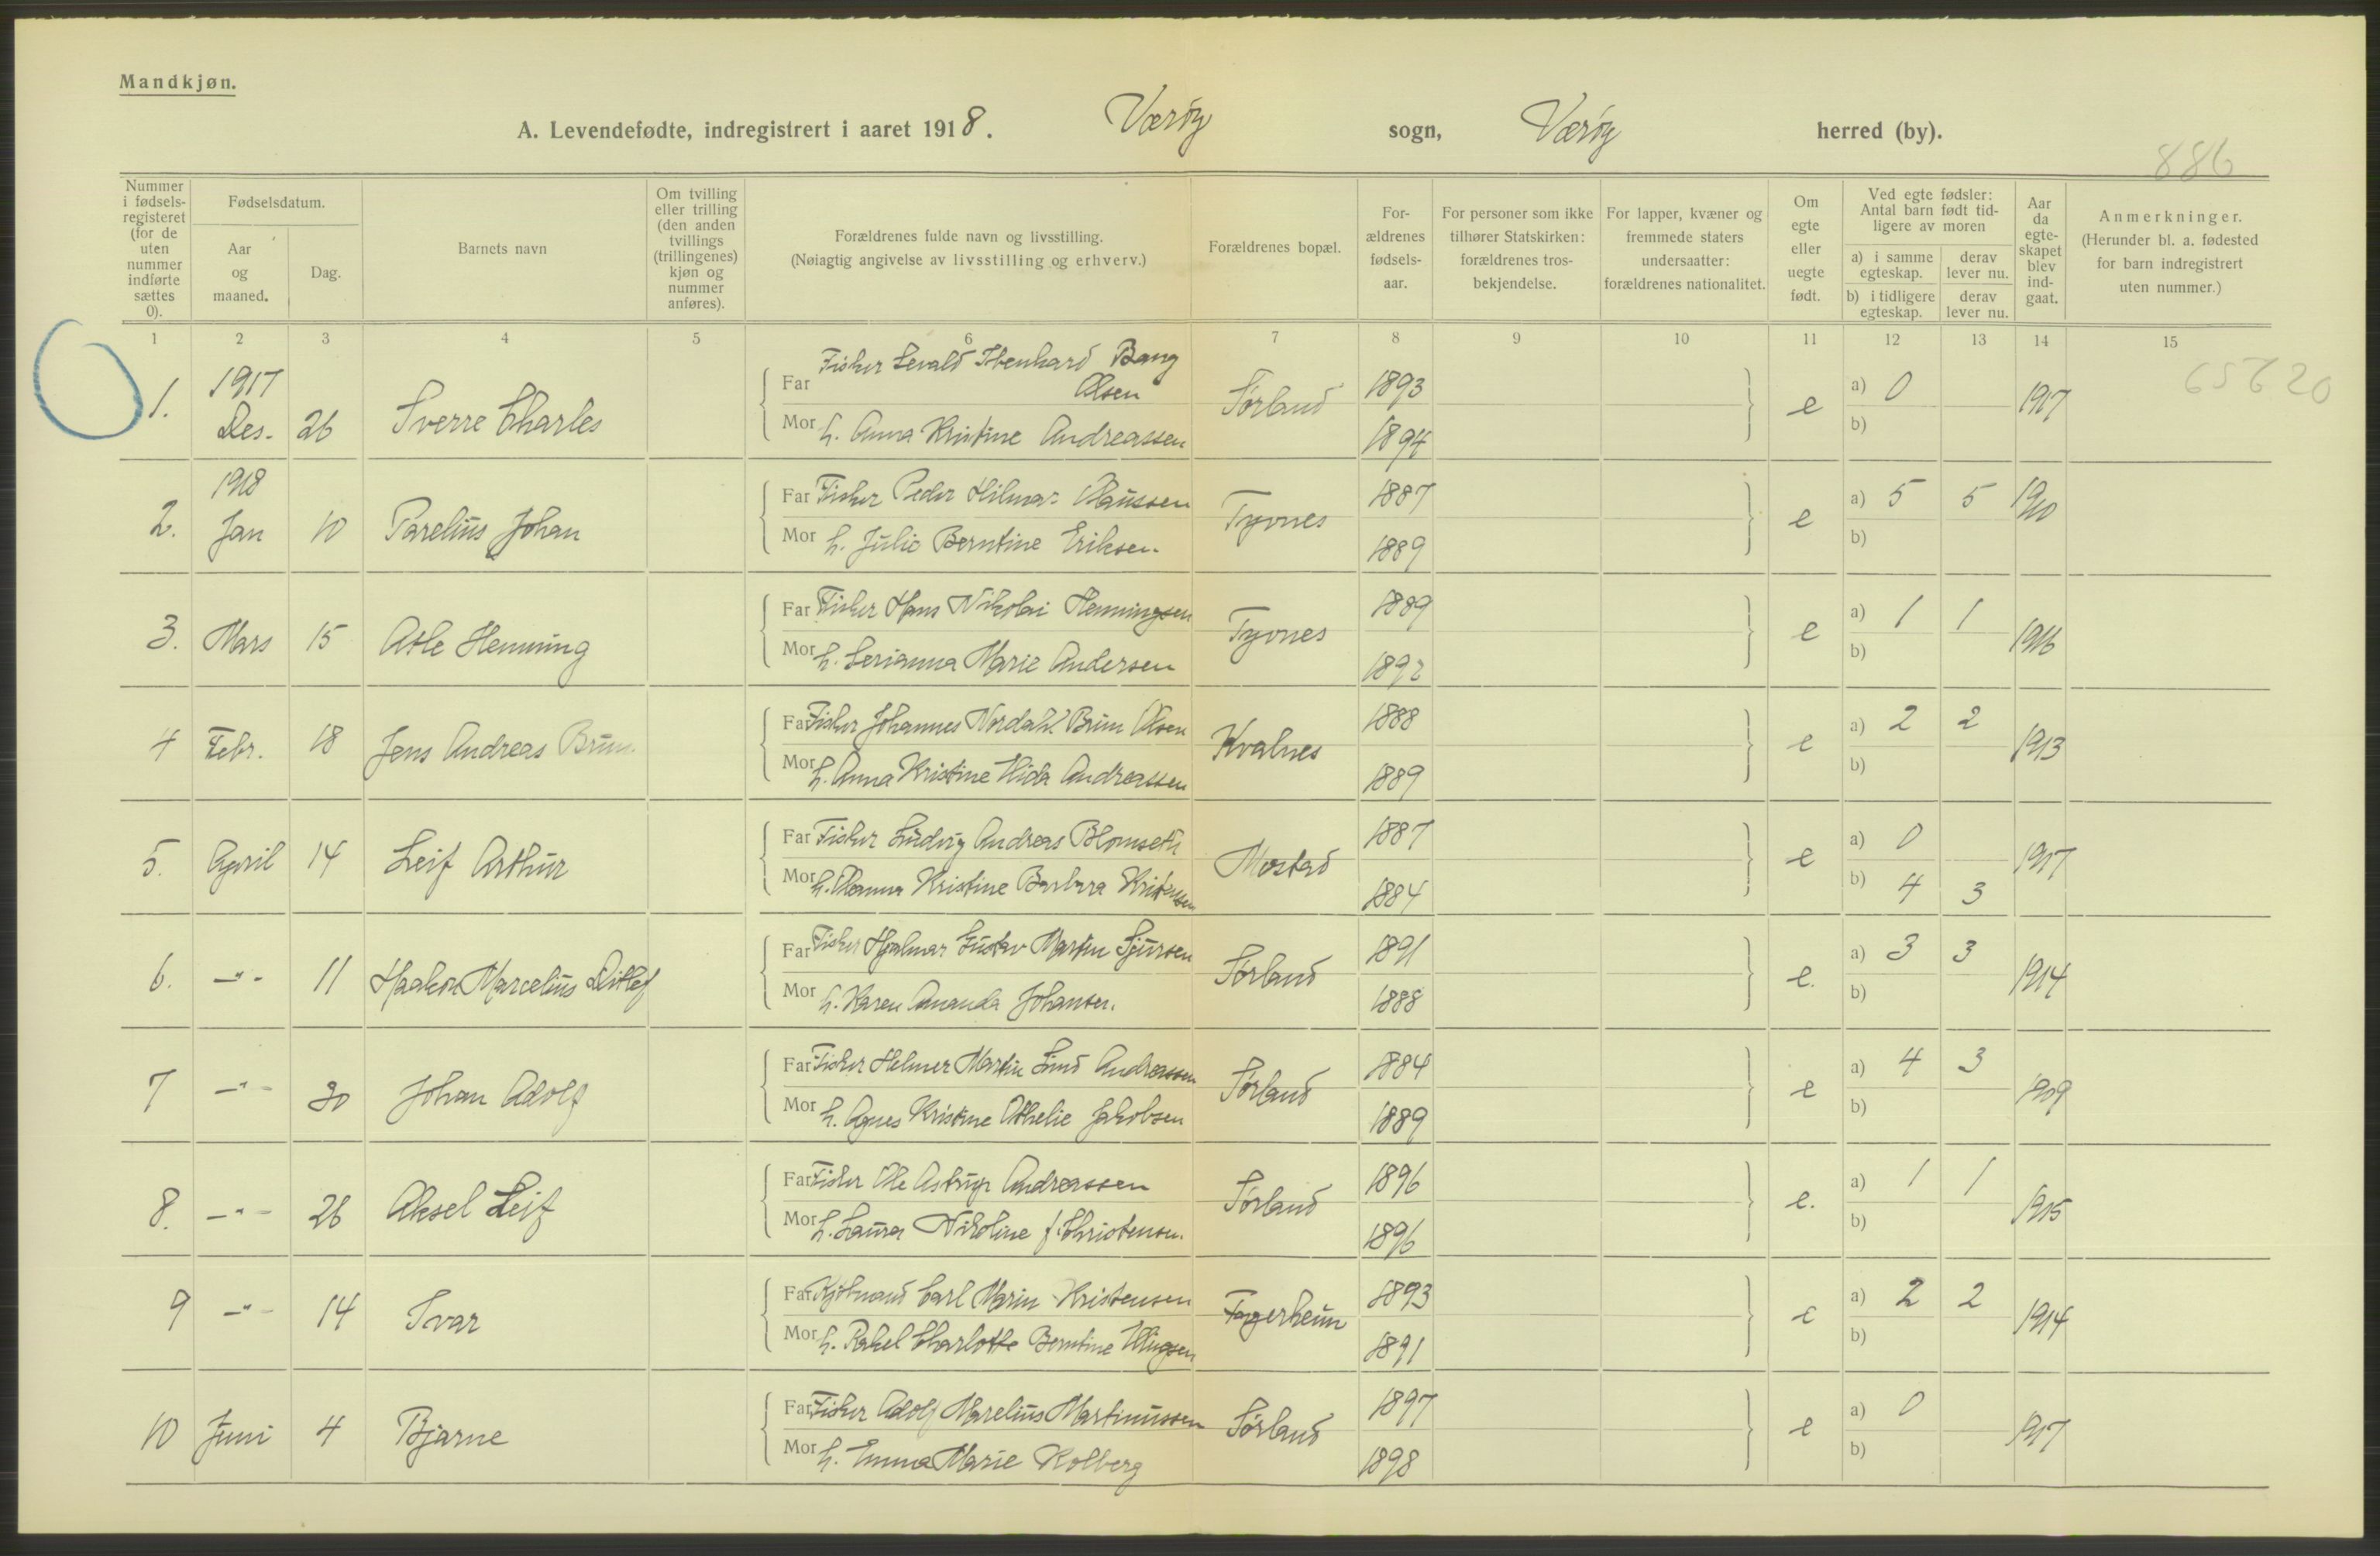 Mandkjøn.
A. Levendefødte, indregistrert i aaret 1918. Værøy sogn, Værøy herred (by).
886
Nummer i fødselsregisteret (for de uten nummer indførte sættes 0).
Fødselsdatum.
Aar og maaned.
Dag.
Barnets navn
Om tvilling eller trilling (den anden tvillings (trillingenes) kjøn og nummer anføres).
Forældrenes fulde navn og livsstilling.
(Nøiagtig angivelse av livsstilling og erhverv.)
Forældrenes bopæl.
Forældrenes fødselsaar.
For personer som ikke tilhører Statskirken: forældrenes trosbekjendelse.
For lapper, kvæner og fremmede staters undersaatter: forældrenes nationalitet.
Om egte eller uegte født.
Ved egte fødsler: Antal barn født tidligere av moren
a) i samme egteskap.
derav lever nu.
b) i tidligere egteskap.
derav lever nu.
Aar da egteskapet blev indgaat.
Anmerkninger.
(Herunder bl. a. fødested for barn indregistrert uten nummer.)
1 2 3 4 5 6 7 8 9 10 11 12 13 14 15
1. 1917 Des. 26 Sverre Charles
Far Fisker Bang Olsen
Mor h. Anna Kristine Andreassen
Sørland 1893 1894 e a) 0 b) 1917
65620
2. 1918 Jan 10 Parelius Johan
Far Fisker Peder Hilmar Claussen
Mor h. Julie Berntine Eriksen
Tyvnes 1887 1889 e a) 5 5 b) 1910
3. Mars 15 Atle Henning
Far Fisker Hans Nikolai Henningsen
Mor h. Serianna Marie Andersen
Tyvnes 1889 1892 e a) 1 1 b) 1916
4 Febr. 18 Jens Andreas Brun
Far Fisker Johannes Nordahl Brun Olsen
Mor h. Anna Kristine Hida Andreassen
Kvalnes 1888 1889 e a) 2 2 b) 1913
5. April 14 Leif Arthur
Far Fisker Ludvig Andreas Blomseth
Mor h. Kristine Barbara Kristensen
Mostad 1887 1884 e a) 0 b) 4 3 1917
6. -"- 11 Haakon Marcelius Ditlef
Far Fisker Hjalmar Gustav Martin Sjursen
Mor h. Karen Amanda Johansen.
Sørland 1891 1888 e. a) 3 3 b) 1914
7 -"- 30 Johan Adolf
Far Fisker Helmer Martin Lind Andreassen
Mor h. Agnes Kristine Othelie Jakobsen
Sørland 1884 1889 e a) 4 3 b) 1909
8. -"- 26 Aksel Leif
Far Fisker Ole Astrup Andreassen
Mor h. Laura Nikoline f. Christensen.
Sørland 1896 1896 e. a) 1 1 b) 1915
9 -"- 14 Ivar
Far Kjøbmand Carl Marin Kristensen
Mor h. Rakel Charlotte Berntine Ellingsen
Fagerheim 1893 1891 e a) 2 2 b) 1914
10 Juni 4 Bjarne
Far Fisker Adolf Marelius Martinussen
Mor h. Emma Marie Kolberg
Sørland 1897 1898 e a) 0 b) 1917